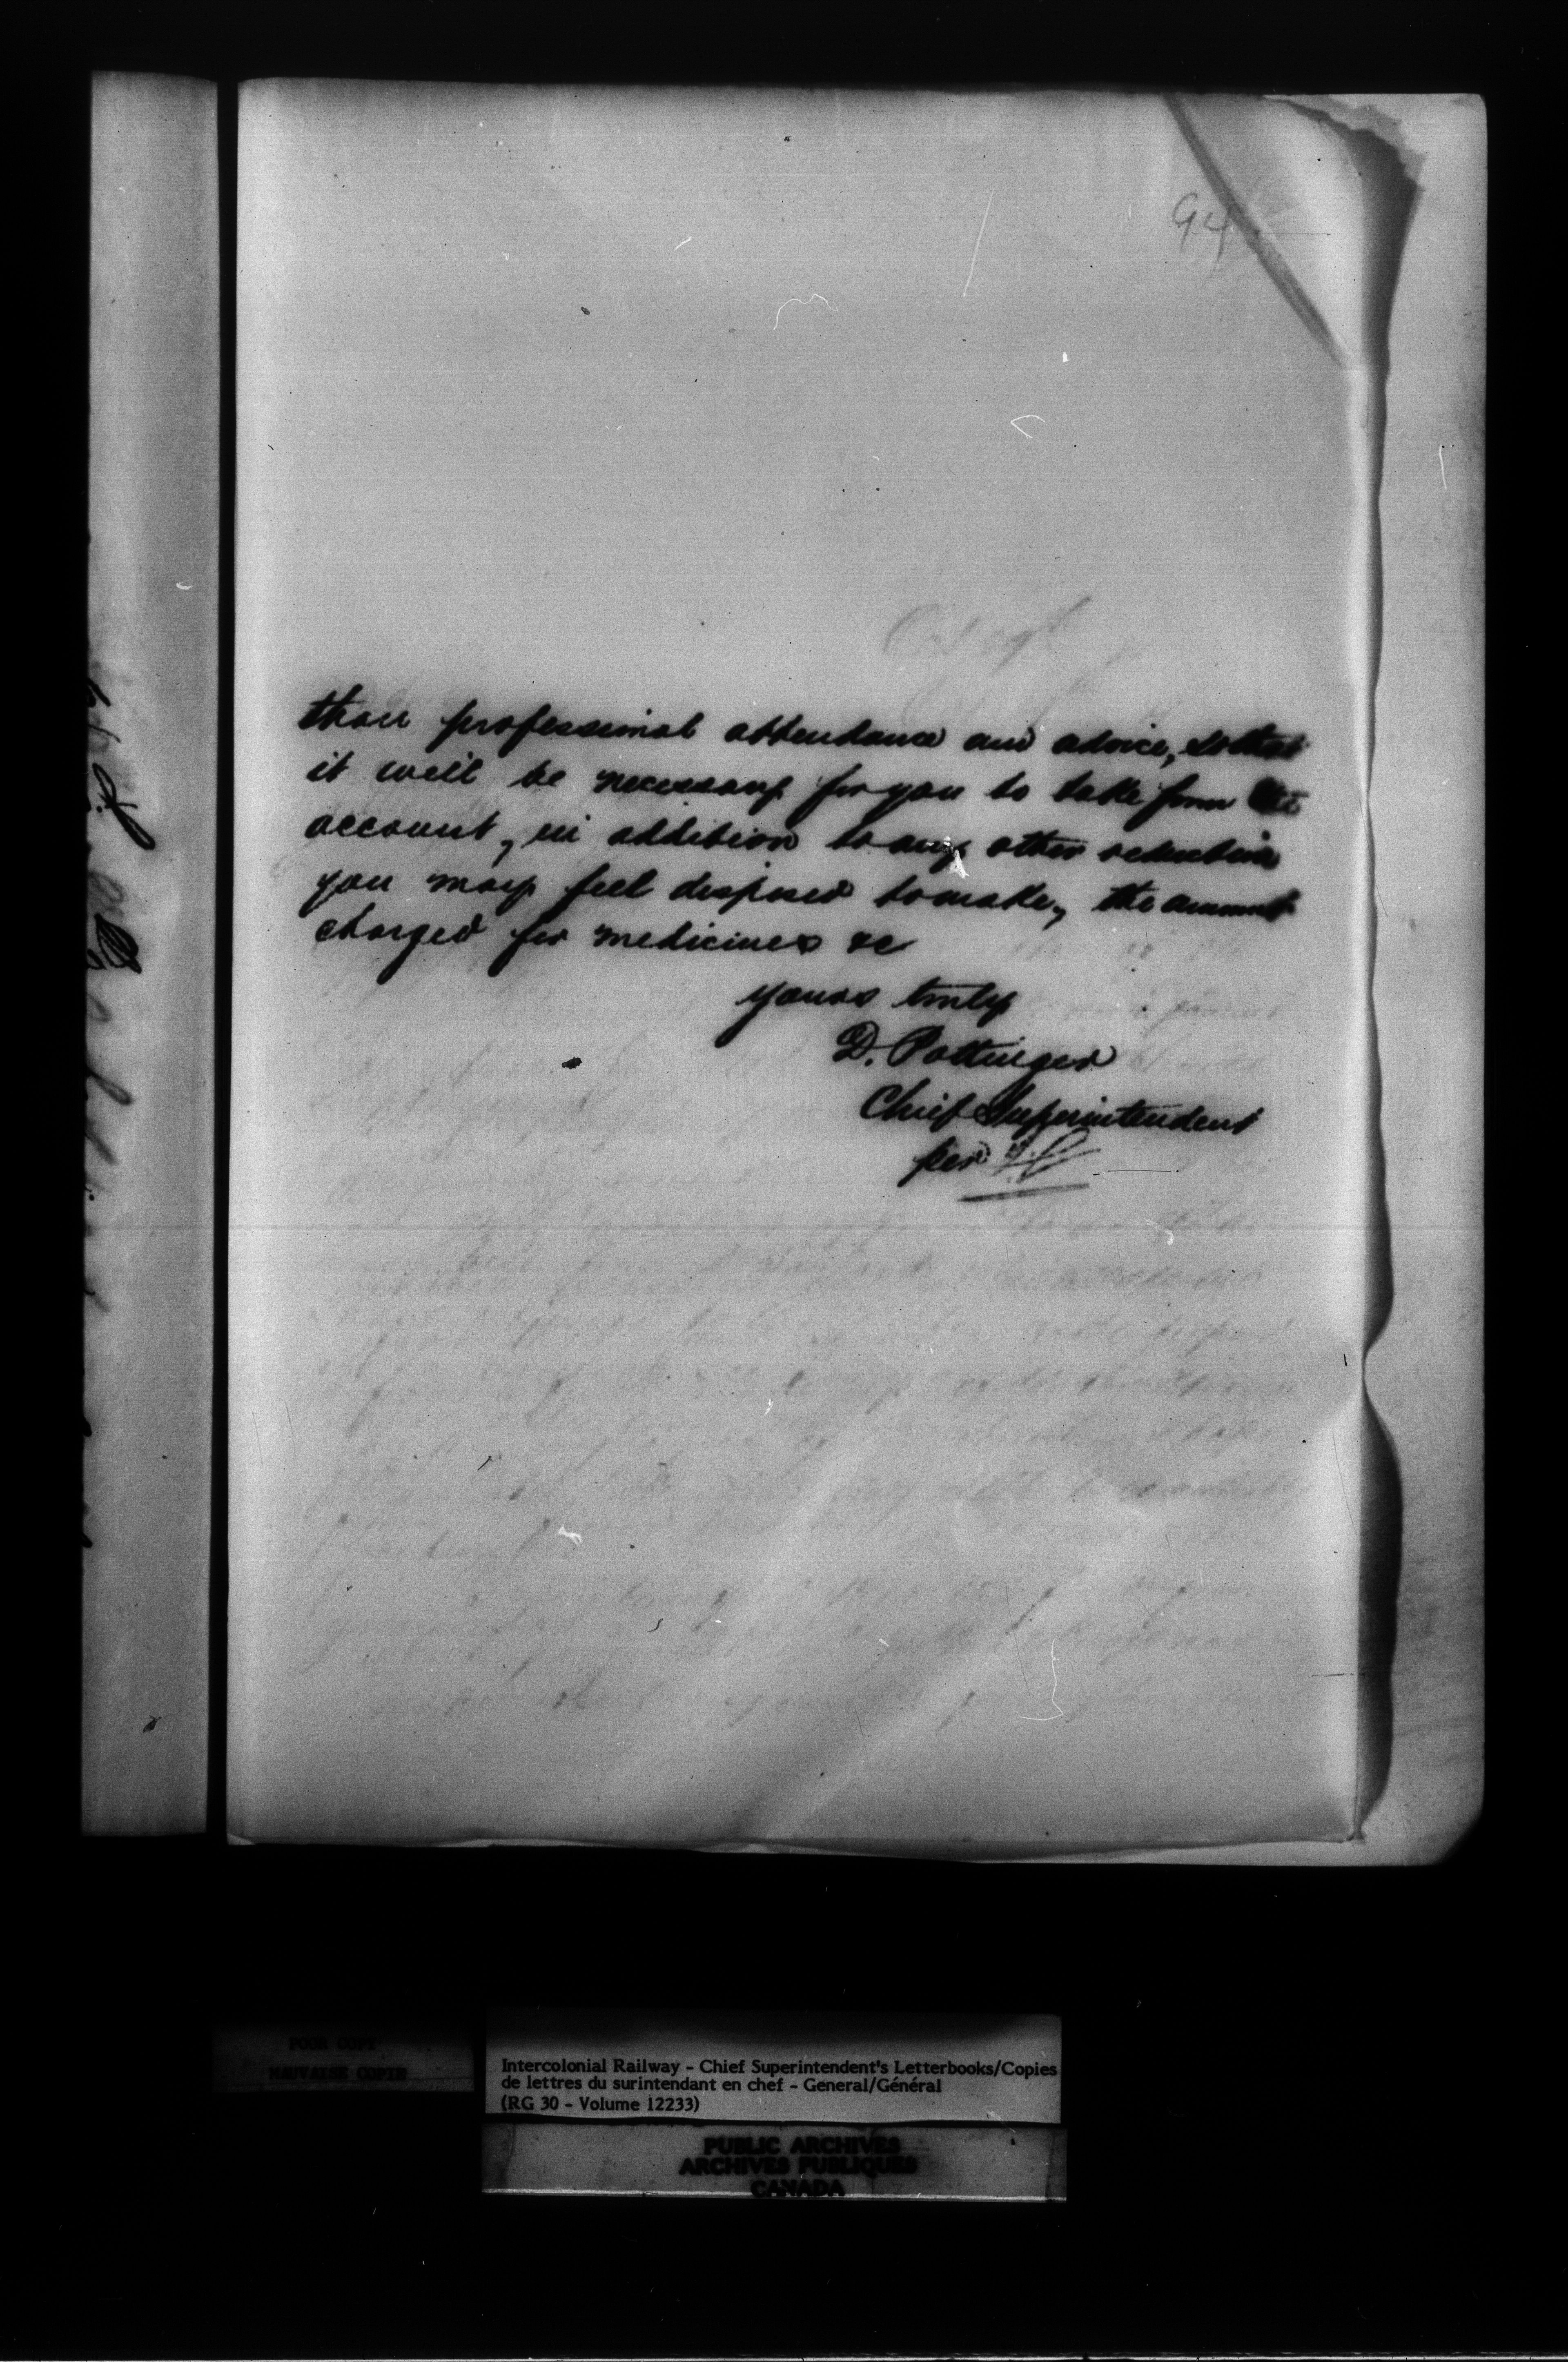 94
than professional attendance and advice, so that
it will be necessary for you to take from the
account, in addition to any other reduction
you may feel disposed to make, the amount
charged for medicines &c
Yours truly
D. Pottinger
Chief Superintendent
per
POOR COPY
MAUVAISE COPIE
Intercolonial Railway - Chief Superintendent's Letterbooks/Copies
de lettres du surintendant en chef - General/Général
(RG 30 - Volume 12233)
PUBLIC ARCHIVES
ARCHIVES PUBLIQUES
CANADA